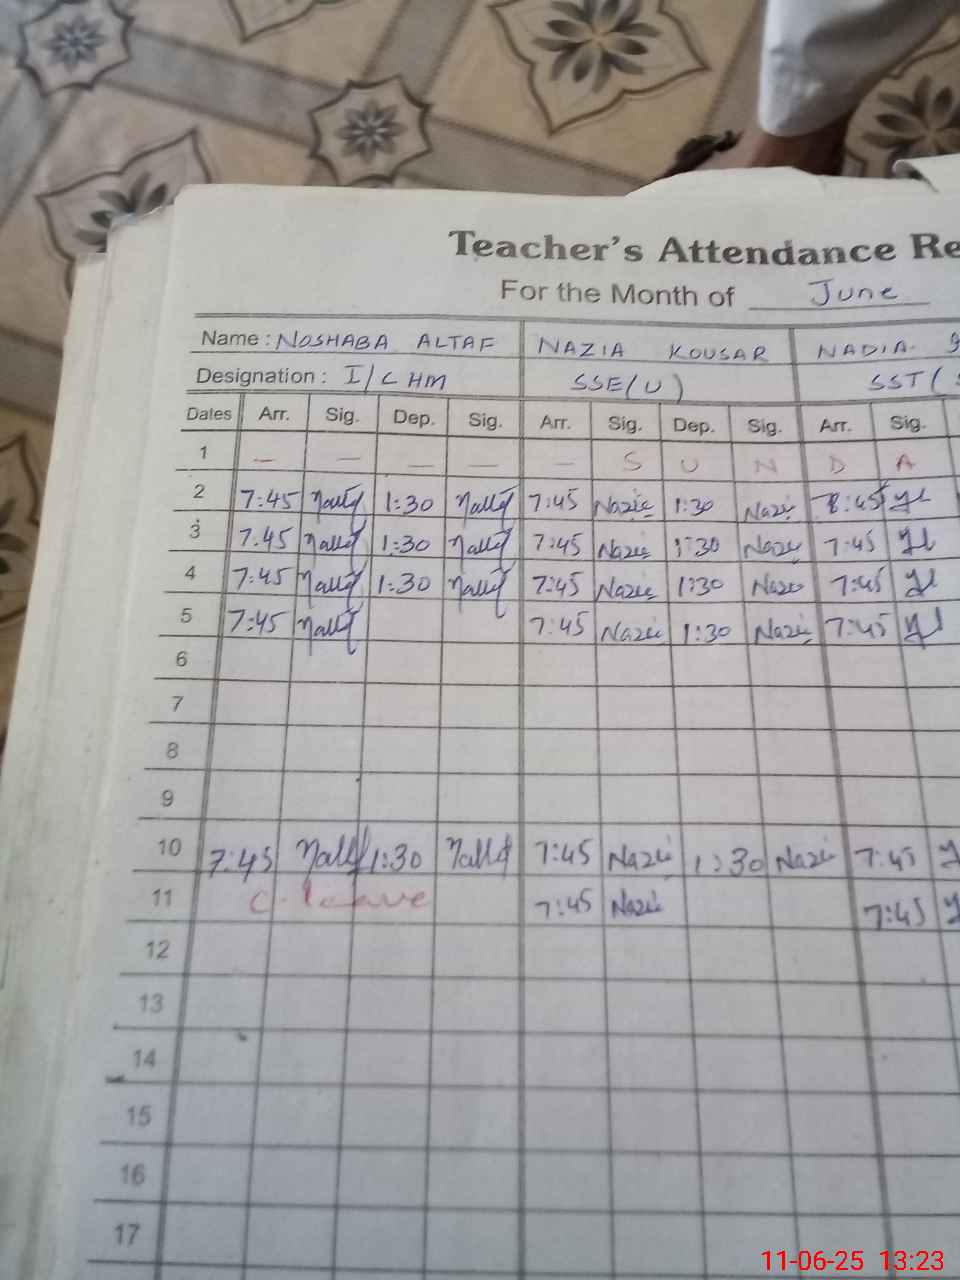 Teacher's Attendance Re
For the Month of June
Name : NOSHABA ALTAF NAZIA KOUSAR NADIA
Designation : I/C HM SSE(U) SST(
Dates Arr. Sig. Dep. Sig. Arr. Sig. Dep. Sig. Arr. Sig.
1 — — — — — S U N D A
2 7:45 1:30 7:45 Nazie 1:30 Nazie 8:45
3 7:45 1:30 7:45 Nazie 1:30 Nazie 7:45
4 7:45 1:30 7:45 Nazie 1:30 Nazie 7:45
5 7:45 7:45 Nazie 1:30 Nazie 7:45
6
7
8
9
10 7:45 1:30 7:45 Nazie 1:30 Nazie 7:45
11 C. leave 7:45 Nazie 7:45
12
13
14
15
16
17
11-06-25 13:23